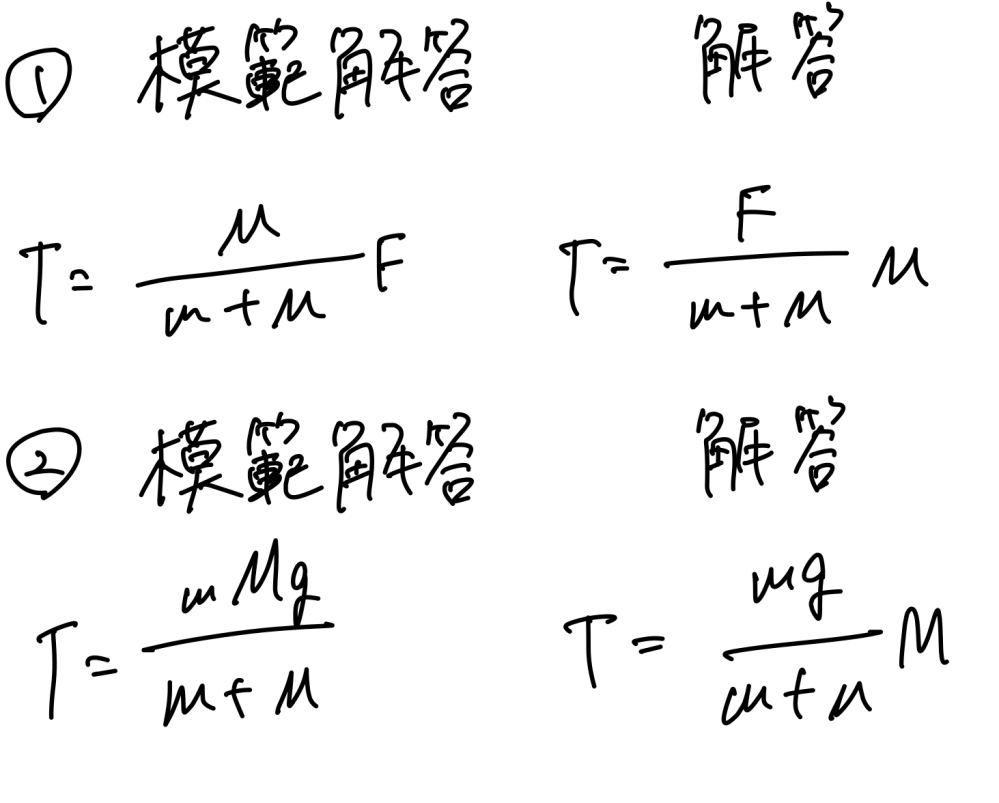 ① 模範解答 解答
T = \frac{M}{m+M} F T = \frac{F}{m+M} M
② 模範解答 解答
T = \frac{mMg}{m+M} T = \frac{mg}{m+M} M